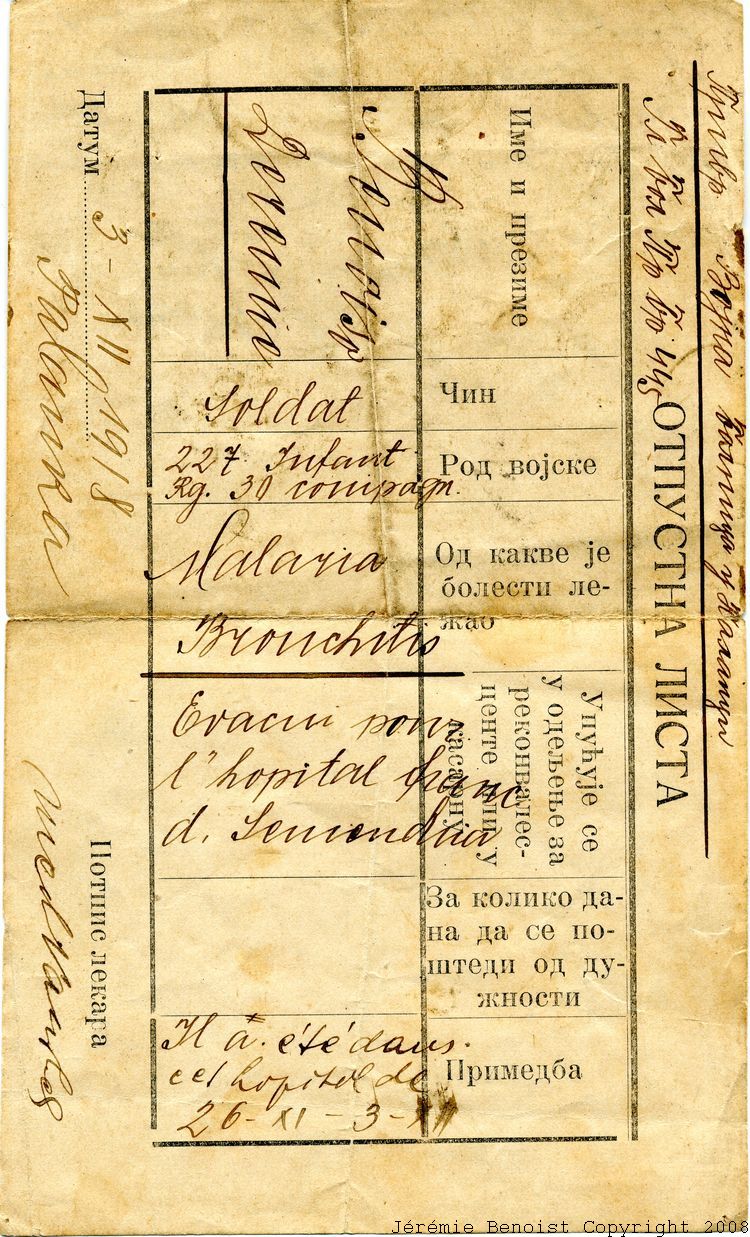 Привр Војна болница у Паланци
Гл бол Пр бр 445
ОТПУСТНА ЛИСТА
Име и презиме
Чин
Soldat
Род војске
227 Infant
Rg. 30 compagn.
Од какве је
болести ле-
жао
Malaria
Bronchitis
Упућује се
у одељење за
реконвалес-
центе или у
касарну
Evacui pour
l'hopital franc
d. Semendria
За колико да-
на да се по-
штеди од ду-
жности
Примедба
Il a été dans
cet hopitol de
26-XI-3-XII
Датум 3-XII 1918
Palanka
Потпис лекара
Jérémie Benoist Copyright 2008